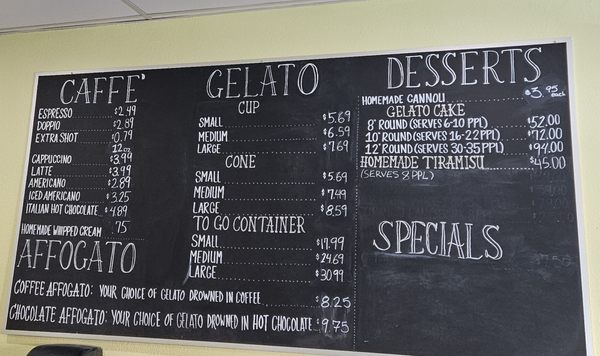 CAFFE'
ESPRESSO $2.49
DOPPIO $2.89
EXTRA SHOT $0.79
12oz
CAPPUCINO $3.99
LATTE $3.99
AMERICANO $2.89
ICED AMERICANO $3.25
ITALIAN HOT CHOCOLATE $4.89
HOMEMADE WHIPPED CREAM .75
AFFOGATO
COFFEE AFFOGATO: YOUR CHOICE OF GELATO DROWNED IN COFFEE $8.25
CHOCOLATE AFFOGATO: YOUR CHOICE OF GELATO DROWNED IN HOT CHOCOLATE $9.75
GELATO
CUP
SMALL $5.69
MEDIUM $6.59
LARGE $7.69
CONE
SMALL $5.69
MEDIUM $7.49
LARGE $8.59
TO GO CONTAINER
SMALL $17.99
MEDIUM $24.69
LARGE $30.99
DESSERTS
HOMEMADE CANNOLI $3.95 each
GELATO CAKE
8" ROUND (SERVES 6-10 PPL) $52.00
10" ROUND (SERVES 16-22 PPL) $72.00
12" ROUND (SERVES 30-35 PPL) $94.00
HOMEMADE TIRAMISU $45.00
(SERVES 8 PPL)
SPECIALS